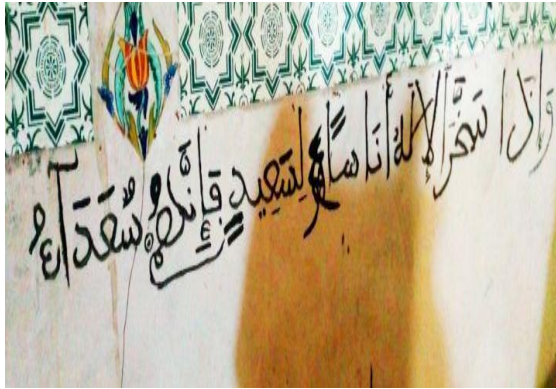 وَإِذَا سَخَّرَ الإِلَهُ أُنَاسًا لِسَعِيدٍ فَإِنَّهُمْ سُعَدَآءُ